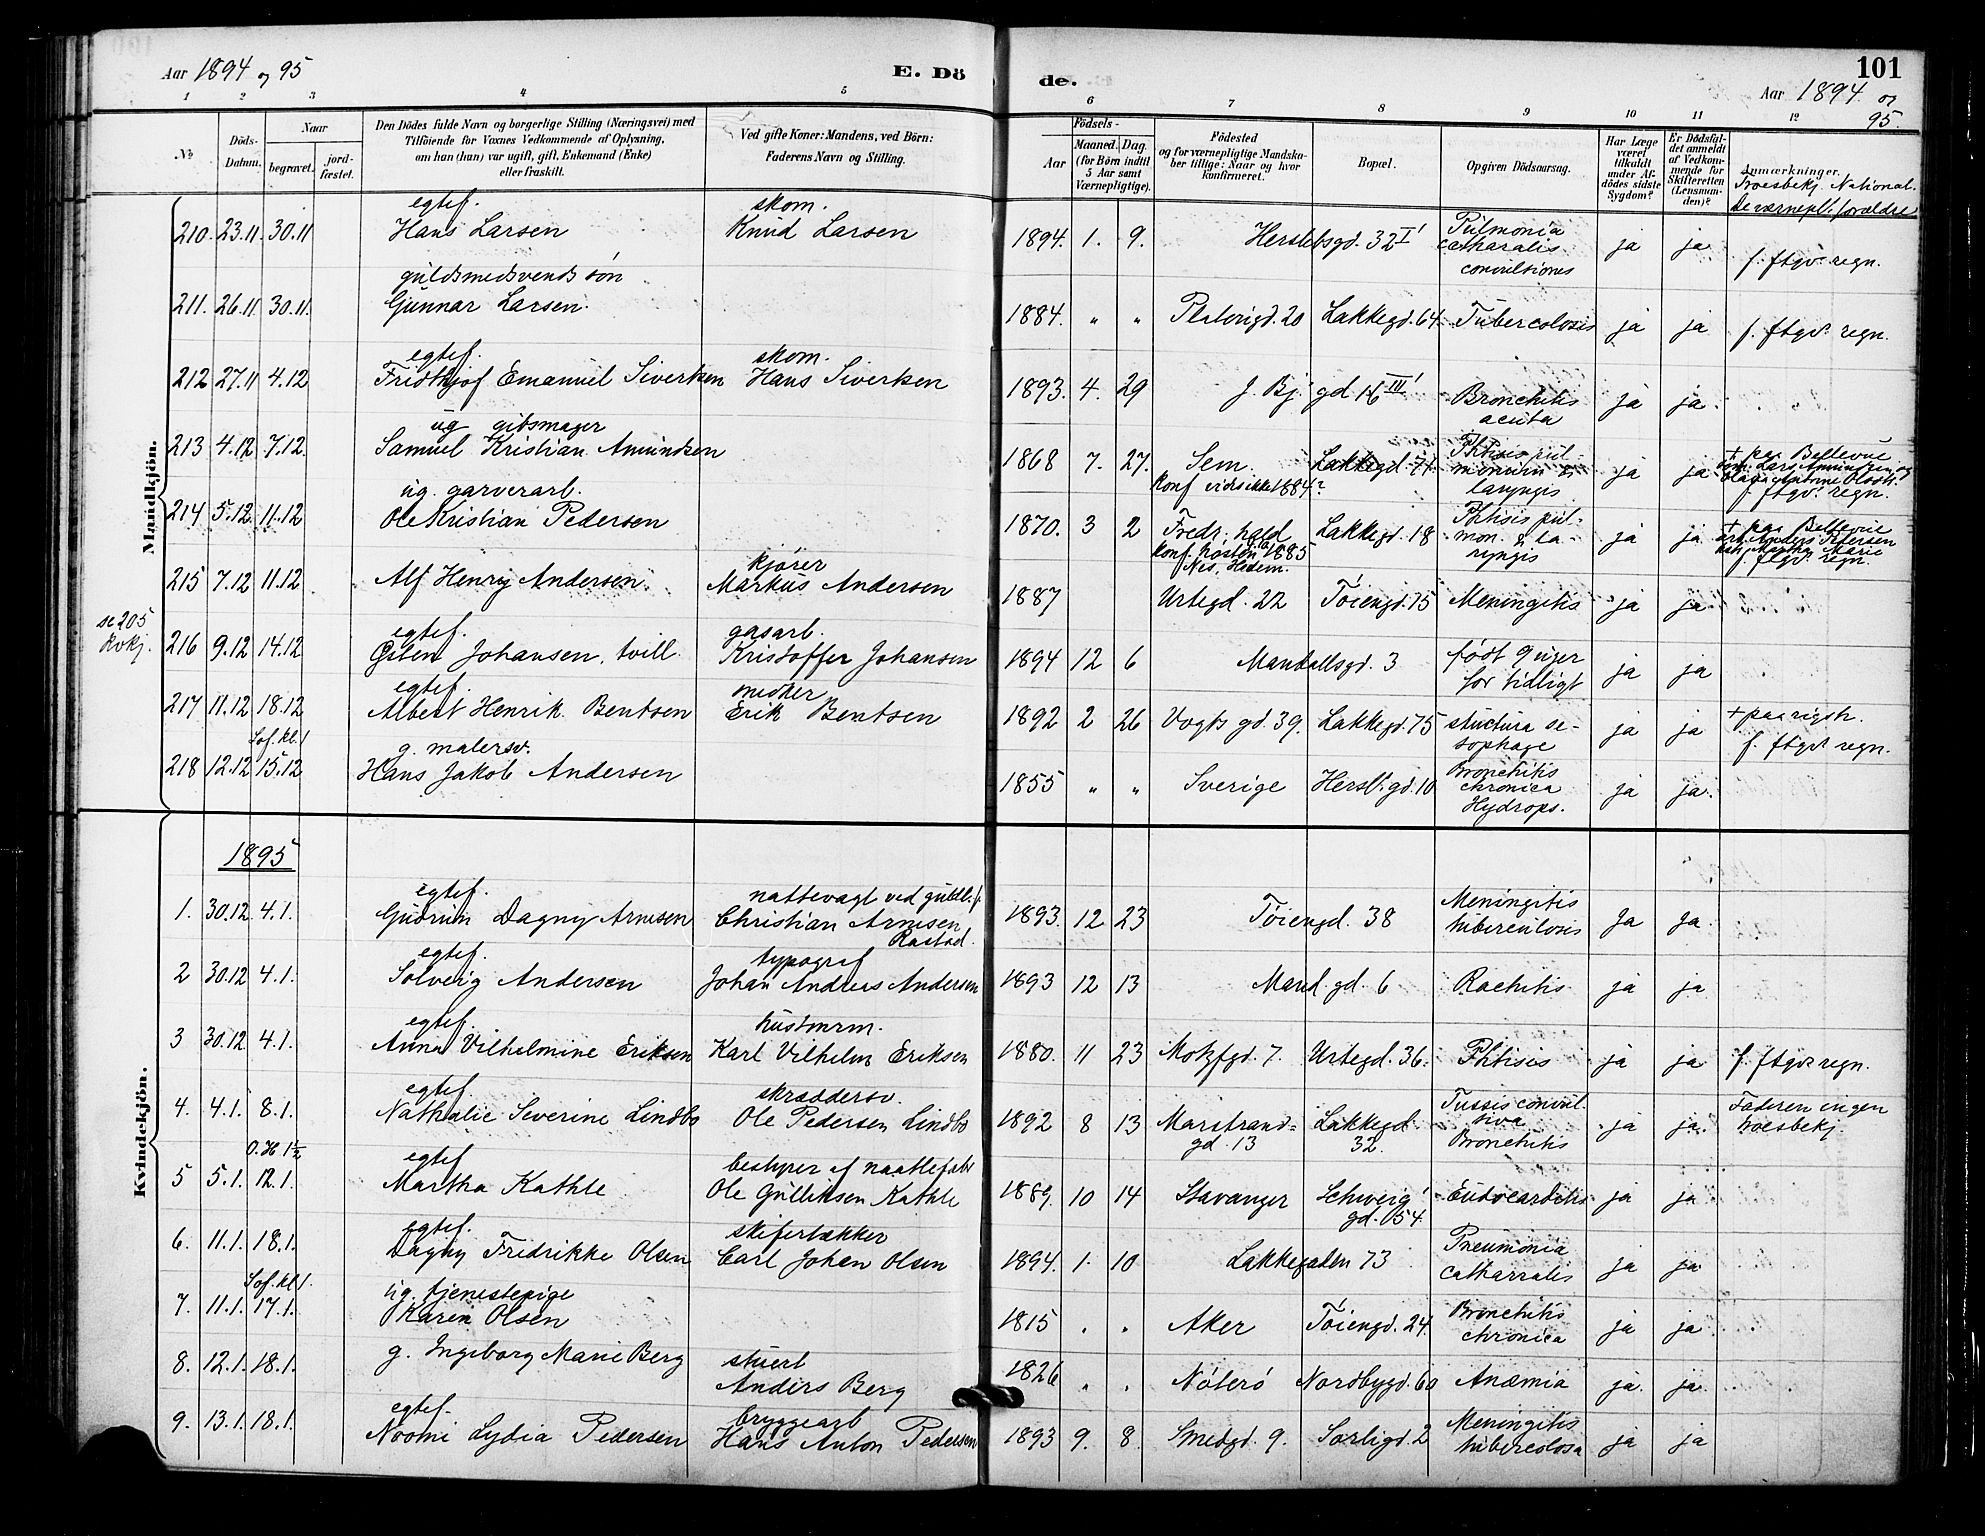 Aar 1894 og 95
E. Dö
de.
101
Aar 1894 og
95.
1 2 3 4 5 6 7 8 9 10 11 12
No
Döds-
Datum.
Naar
begravet.
jord-
fæstet.
Den Dödes fulde Navn og borgerlige Stilling (Næringsvei) med
Tilföiende for Voxnes Vedkommende af Oplysning,
om han (hun) var ugift, gift, Enkemand (Enke)
eller fraskilt.
Ved gifte Koner: Mandens, ved Börn:
Faderens Navn og Stilling.
Födsels-
Aar
Maaned. Dag.
(for Börn indtil
5 Aar samt
Værnepligtige).
Födested
og for værnepligtige Mandska-
ber tillige: Naar og hvor
konfirmeret.
Bopæl.
Opgiven Dödsaarsag.
Har Læge
været
tilkaldt
under Af-
dödes sidste
Sygdom?
Er Dödsfal-
det anmeldt
af Vedkom-
mende for
Skifteretten
(Lensman-
den)?
Anmærkninger.
Troesbekj. National.
De værnepl. forældre
Mandkjön.
egtef. skom.
210. 23.11. 30.11 Hans Larsen Knud Larsen 1894. 1. 9. Herslebsgd. 32 I Pulmonia
catharalis
convultiones ja ja f. ftgv. regn.
guldsmedsvends sön
211. 26.11. 30.11. Gunnar Larsen. 1884. " " Platousgd. 20 Lakkegd. 64 Tubercolosis ja ja f. ftgv. regn.
egtef. skom.
212 27.11 4.12 Fridthjof Emanuel Sivertsen Hans Sivertsen 1893. 4. 29 J. Bj. gd 16 III Bronchitis
acuta ja ja. "
ug gibsmager
213 4.12 7.12. Samuel Kristian Amundsen 1868 7. 27. Sem. Lakkegd. 71. Phtisis pul-
monum &
laryngis ja ja + paa Bellevue
konf vides ikke 1884?
f. ftgv. regn.
ug. garverarb.
214 5.12 11.12 Ole Kristian Pedersen 1870. 3 2 Fredr. hald Lakkegd. 18 Phtisis pul-
mon. & la-
ryngis ja ja + paa Bellevue
konf. hösten 1885
Nes, Hedem.
arb. Anders Petersen
Marie
f. ftgv. regn.
kjører
215 7.12 11.12 Alf Henry Andersen. Markus Andersen 1887 Urtegd. 22 Töiengd. 75 Meningitis ja ja
se 205
Kvkj.
egtef. gasarb.
216 9.12 14.12 Østen Johansen, tvill. Kristoffer Johansen 1894 12 6 Mandallsgd. 3 födt 9 uger
for tidligt ja ja
egtef. snedker
217 11.12 18.12 Albert Henrik Bentsen Erik Bentsen 1892 2 26 Vogts gd. 39. Lakkegd. 75 stuctura oe-
sophage ja ja + paa rigsh.
f. ftgv. regn.
Sof. kl. 1
g. malersv.
218 12.12 15.12 Hans Jakob Andersen 1855 " " Sverige Hersl. gd. 10 Bronchitis
chronica
Hydrops. ja ja.
Kvindekjön.
1895
egtef. nattevagt ved guldl. f.
1. 30.12 4.1. Gudrun Dagny Arnesen Christian Arnesen
Rastad. 1893. 12 23 Töiengd. 38 Meningitis
tuberculosis Ja ja.
egtef. typograf
2 30.12 4.1. Solveig Andersen Johan Andreas Andersen 1893 12 13 Mand. gd. 6 Rachitis ja ja
egtef. hustömrm.
3 30.12 4.1. Anna Vilhelmine Eriksen Karl Vilhelm Eriksen 1880. 11 23 Motzfgd. 7. Urtegd. 36. Phtisis ja ja f. ftgv. regn.
egtef. skræddersv.
4. 4.1. 8.1. Nathalie Severine Lindbo Ole Pedersen Lindbo 1892 8 13 Marstrand-
gd. 13 Lakkegd.
32. Tussis convul-
siva
Bronchitis ja ja. Faderen ingen
troesbekj.
O. H 1½
egtef bestyrer af
5 5.1. 12.1. Martha Kathle Ole Gulliksen Kathle 1889. 10 14 Stavanger Schweig
gd. 54 Endocarditis ja ja
egtef. skifertækker
6. 11.1. 18.1. Dagny Fredrikke Olsen Carl Johan Olsen 1894. 1. 10 Lakkegaden 73 Pneumonia
catharralis ja ja
Sof. kl 1.
ug. tjenestepige
7. 11.1. 17.1. Karen Olsen 1815 " " Aker Töiengd. 24. Bronchitis
chronica ja ja
8. 12.1. 18.1. g. Ingeborg Marie Berg stuert
Anders Berg 1826 " " Nöterö Nordbygd. 60 Anæmia ja. ja.
egtef. bryggearb
9. 13.1. 18.1. Noomi Lydia Pedersen Hans Anton Pedersen 1893 9. 8. Smedgd. 9. Sorligd. 2 Meningitis
tubercolosa ja ja